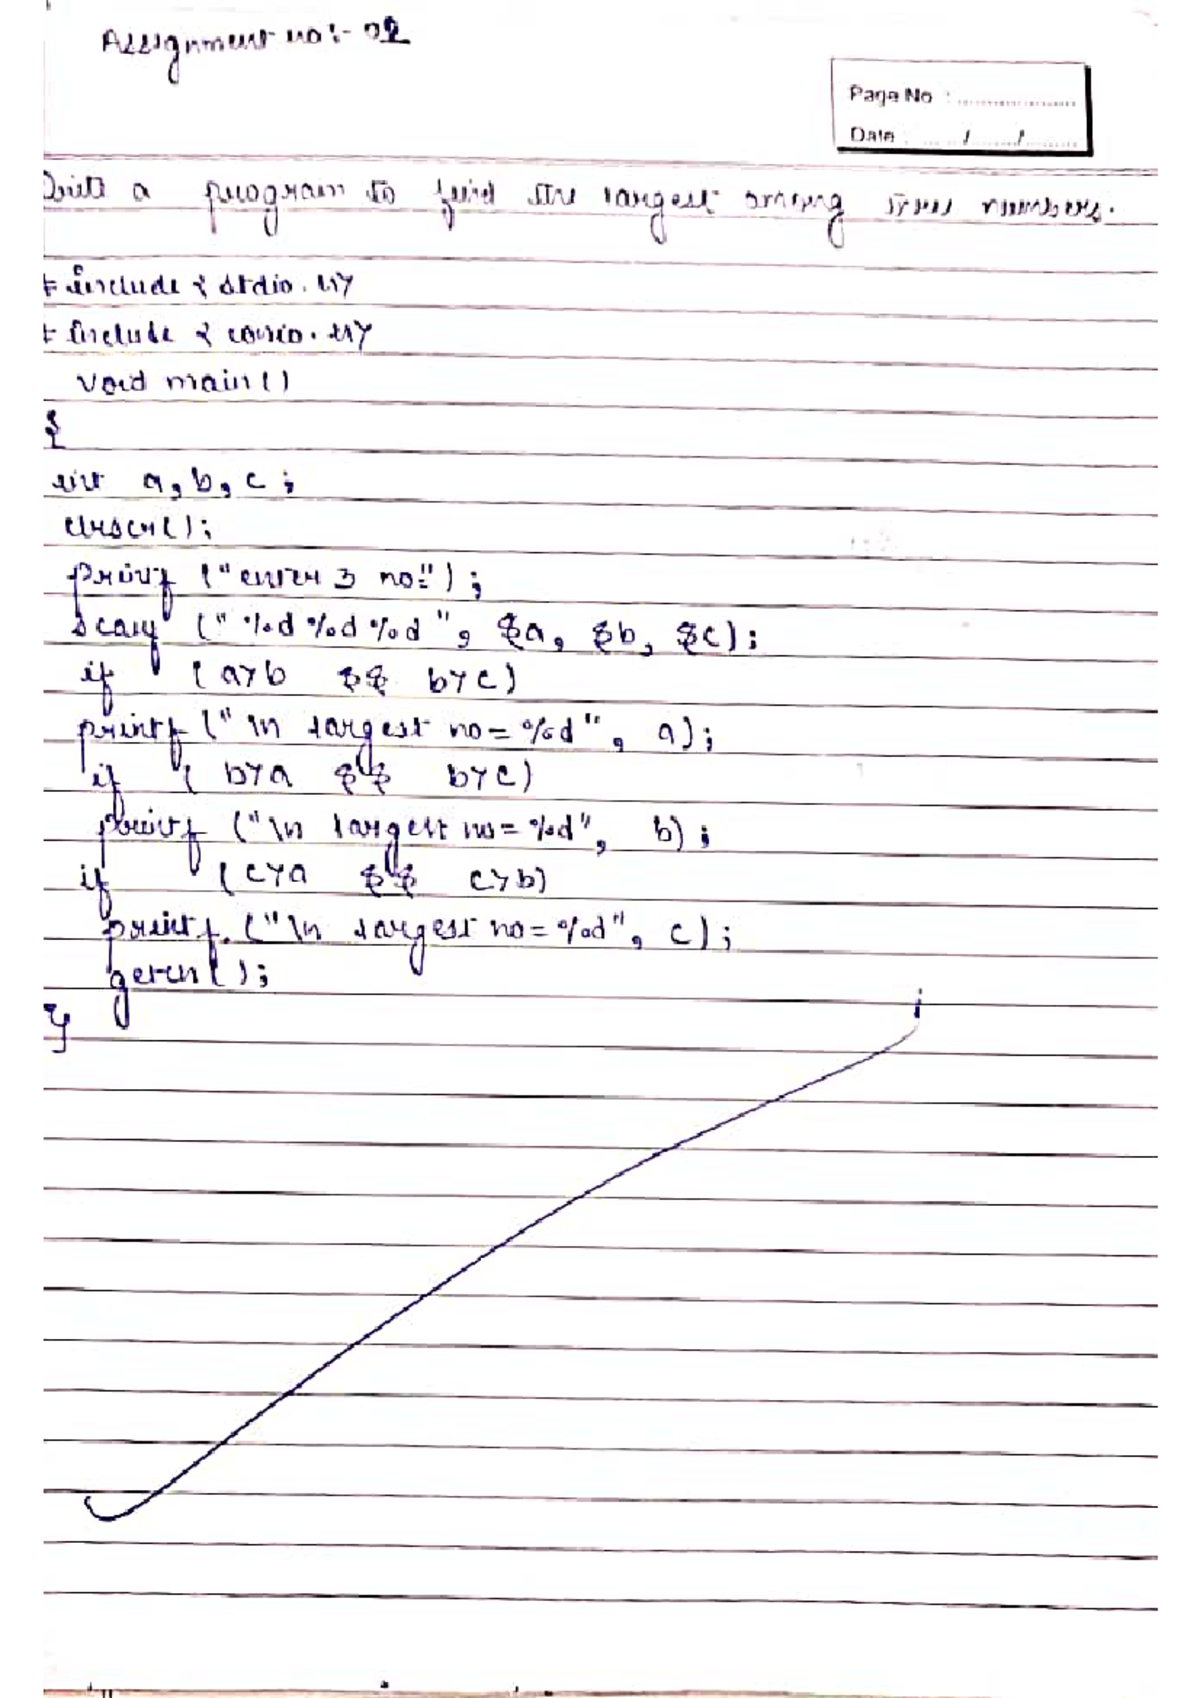 Assignment no:- 02
Page No :
Date : / /
Write a program to find the largest among three numbers.
# include < stdio.h>
# include < conio.h>
void main()
{
int a, b, c ;
clrscr();
printf ("enter 3 no:");
scanf ("%d %d %d ", &a, &b, &c);
if (a>b && b>c)
printf ("\n largest no = %d", a);
if ( b>a && b>c)
printf ("\n largest no = %d", b) ;
if (c>a && c>b)
printf. ("\n largest no = %d", c) ;
getch();
}